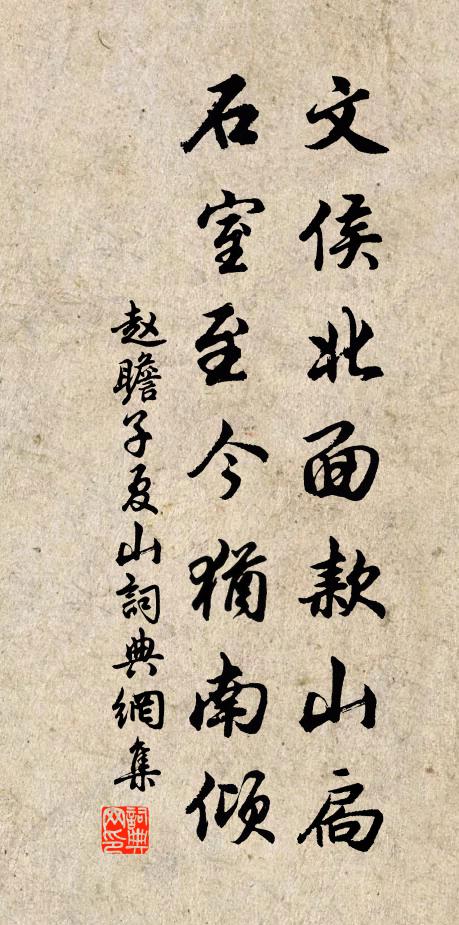 文侯北面款山扃
石室至今犹南倾
赵瞻子夏山詞典網集
詞典网印